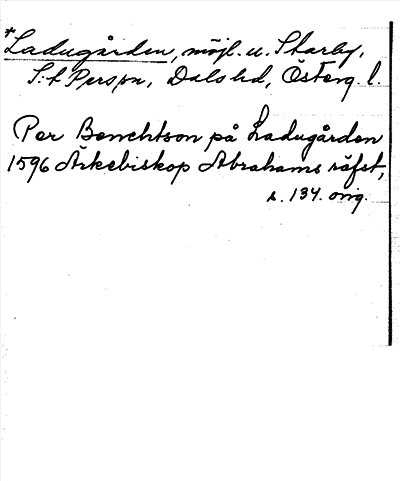 *Ladugården, möjl. u. Starby,
S:t Persson, Dals hd, Österg. l.
Per Benchtson på Ladugården
1596 Ärkebiskop Abrahams räfst,
s. 134. orig.